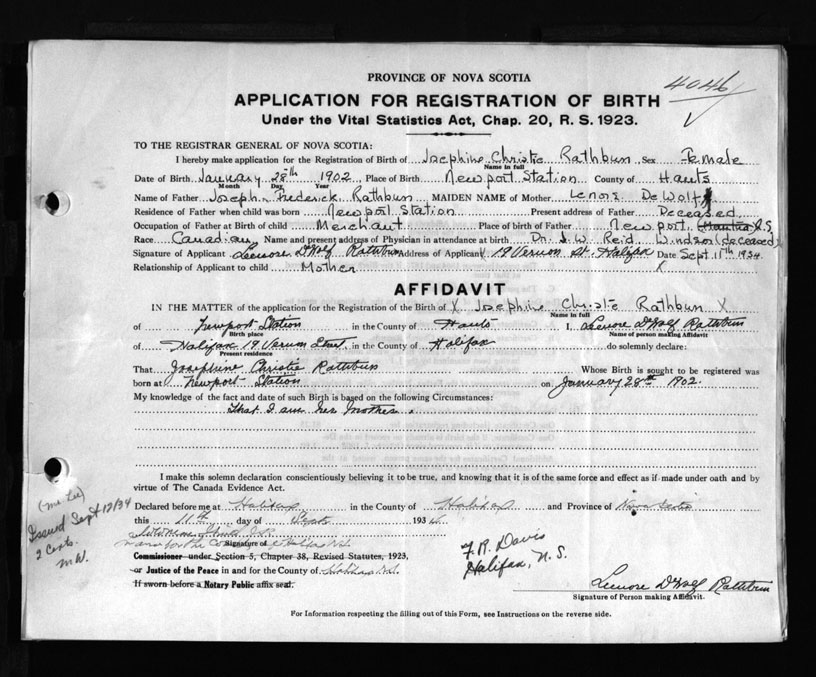 PROVINCE OF NOVA SCOTIA
4046
APPLICATION FOR REGISTRATION OF BIRTH
Under the Vital Statistics Act, Chap. 20, R. S. 1923.
TO THE REGISTRAR GENERAL OF NOVA SCOTIA:
I hereby make application for the Registration of Birth of Josephine Christie Rathbun Sex Female
Name in full
Date of Birth January 28th 1902 Place of Birth Newport Station County of Hants
Month Day Year
Name of Father Joseph Frederick Rathbun MAIDEN NAME of Mother Lenore DeWolf
Residence of Father when child was born Newport Station Present address of Father Deceased
Occupation of Father at Birth of child Merchant Place of birth of Father Newport, N.S
Race Canadian Name and present address of Physician in attendance at birth Dr. J. W. Reid Windsor (deceased)
Signature of Applicant Lenore DWolf Rathbun Address of Applicant 19 Vernon St. Halifax Date Sept. 11th 1934
Relationship of Applicant to child Mother X
AFFIDAVIT
IN THE MATTER of the application for the Registration of the Birth of X Josephine Christie Rathbun X
Name in full
of Newport Station in the County of Hants I, Lenore DWolf Rathbun
Birth place Name of person making Affidavit
of Halifax 19 Vernon Street, in the County of Halifax do solemnly declare:
Present residence
That Josephine Christie Rathbun Whose Birth is sought to be registered was
born at Newport Station on January 28th 1902.
My knowledge of the fact and date of such Birth is based on the following Circumstances:
That I am her Mother.
I make this solemn declaration conscientiously believing it to be true, and knowing that it is of the same force and effect as if made under oath and by
virtue of The Canada Evidence Act.
Declared before me at Halifax in the County of Halifax and Province of Nova Scotia
this 11th day of Sept 1934
Signature of
Commissioner under Section 5, Chapter 38, Revised Statutes, 1923,
or Justice of the Peace in and for the County of Halifax N.S.
If sworn before a Notary Public affix seal.
F. R. Davis
Halifax, N. S.
Lenore DWolf Rathbun
Signature of Person making Affidavit.
For Information respecting the filling out of this Form, see Instructions on the reverse side.
Issued Sept 12/34
2 Certs.
M.W.